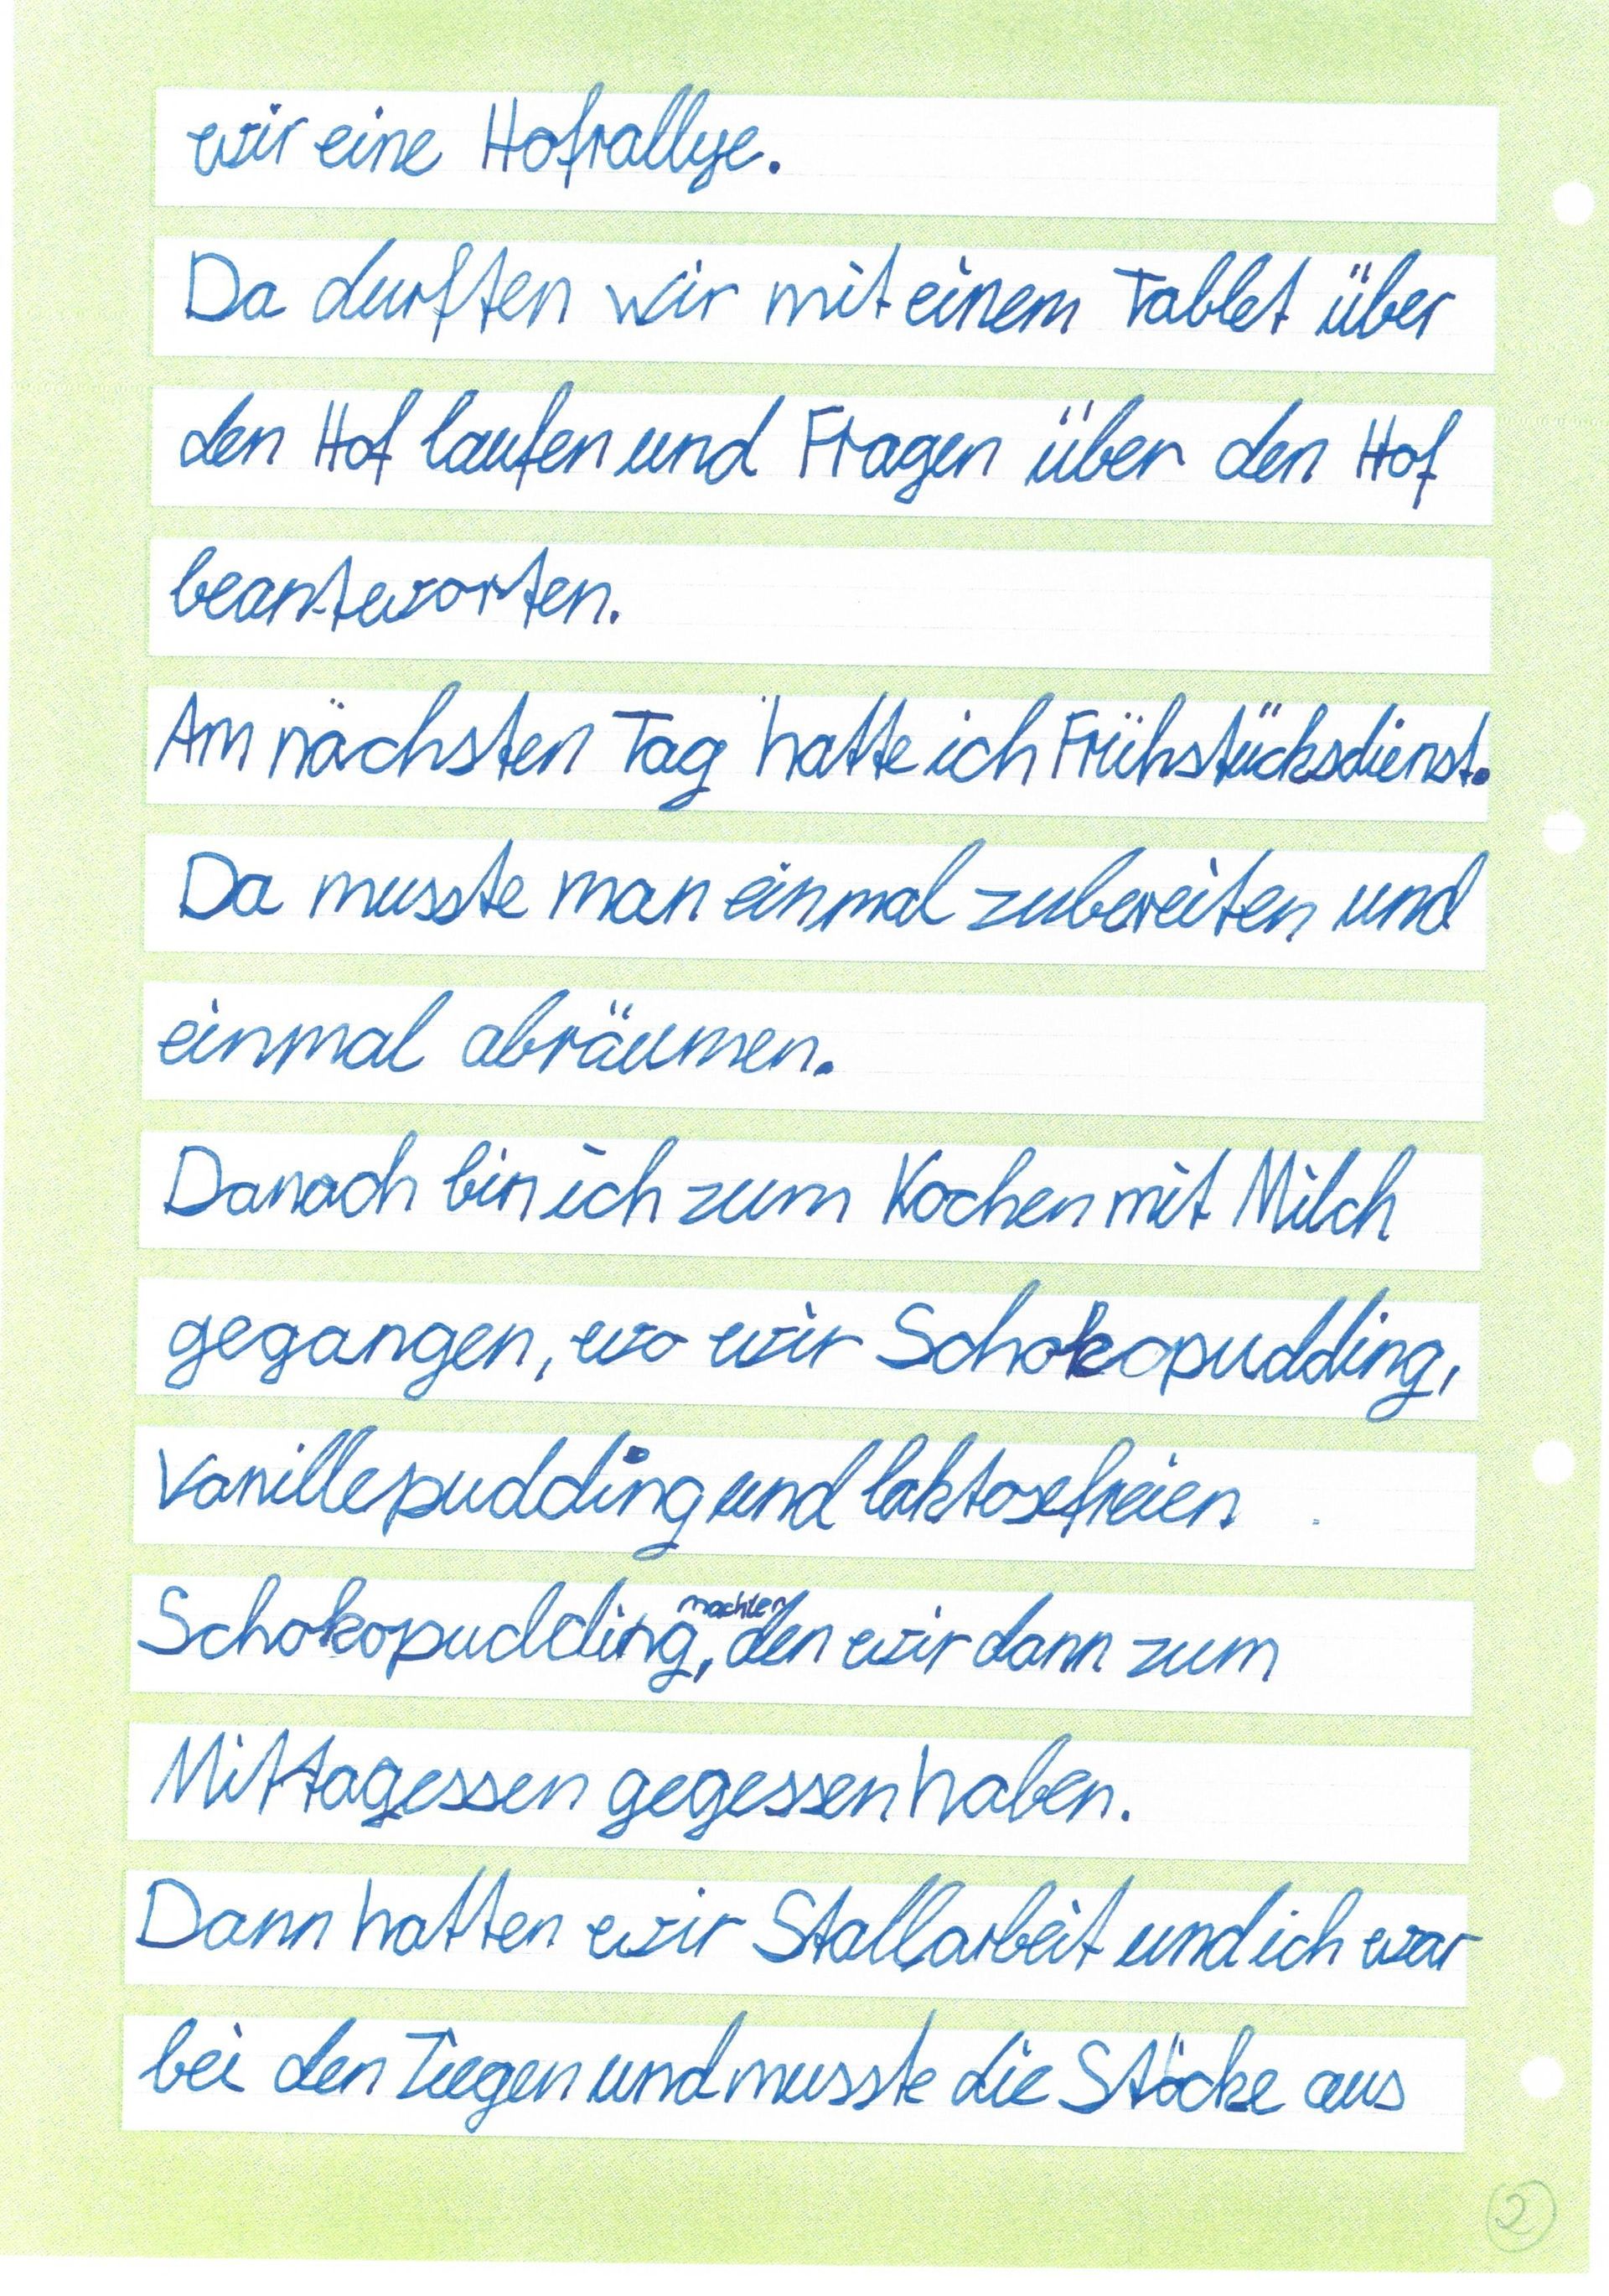 wir eine Hofrallye.
Da durften wir mit einem Tablet über
den Hof laufen und Fragen über den Hof
beantworten.
Am nächsten Tag hatte ich Frühstücksdienst.
Da musste man einmal zubereiten und
einmal abräumen.
Danach bin ich zum Kochen mit Milch
gegangen, wo wir Schokopudding,
Vanillepudding und laktosefreien
machten
Schokopudding, den wir dann zum
Mittagessen gegessen haben.
Dann hatten wir Stallarbeit und ich war
bei den Ziegen und musste die Stöcke aus
2